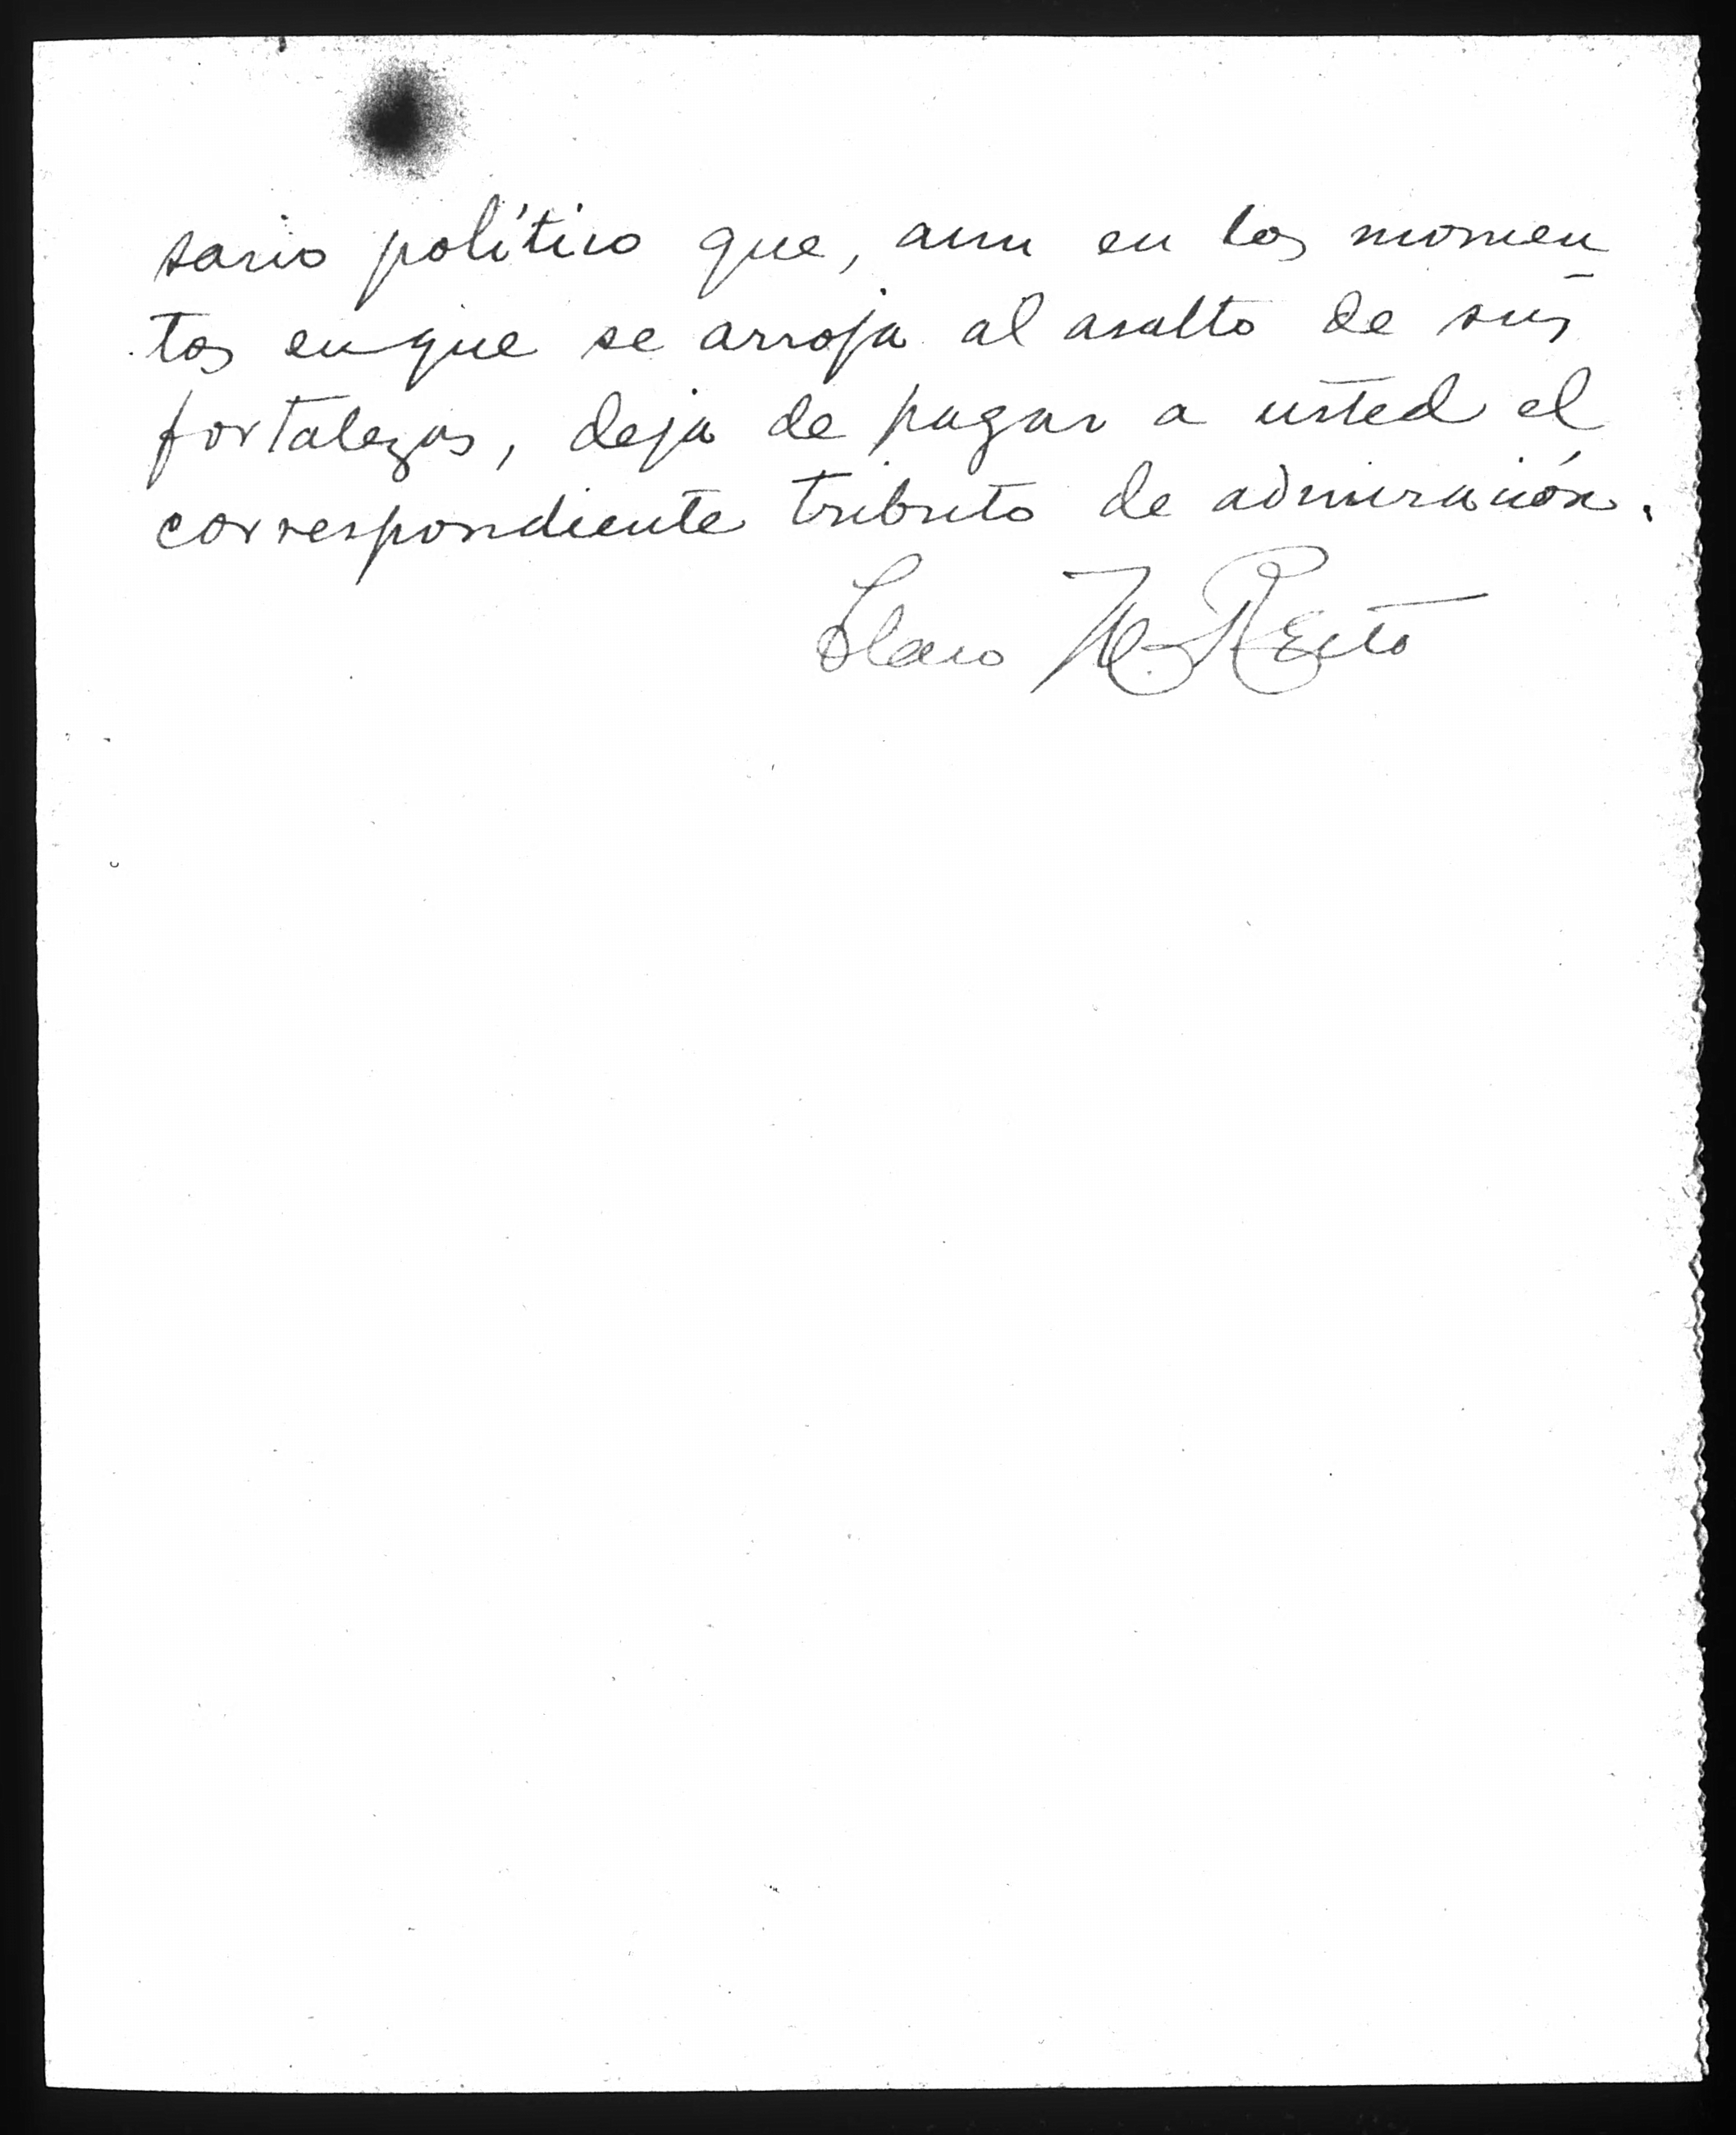 sario político que, aun en los momen-
tos en que se arroja al asalto de sus
fortalezas, deja de pagar a usted el
correspondiente tributo de admiración.
Claro M. Recto